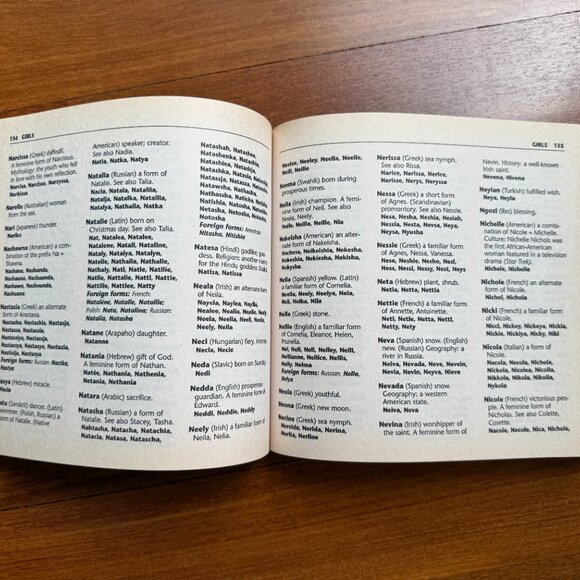 134 GIRLS
Narcissa (Greek) daffodil.
A feminine form of Narcissus.
Mythology: the youth who fell
in love with his own reflection.
Narcisa, Narcisse, Narcyssa,
Narkissa
Narelle (Australian) woman
from the sea.
Nari (Japanese) thunder.
Nariko
Nashawna (American) a com-
bination of the prefix Na +
Shawna.
Nashana, Nashanda,
Nashauna, Nashaunda,
Nashawn, Nashounda
Nashuana
Nastasia (Greek) an alternate
form of Anastasia.
Nastasha, Nastashia, Nastasja,
Nastassa, Nastassia,
Nastassiya, Nastassja,
Nastassya, Nastasya, Nastazia,
Nastisija, Nastasya
Foreign forms: Russian: Nastka,
Nastya
(Hebrew) miracle.
(Sanskrit) dancer. (Latin)
swimmer. (Polish, Russian) a
form of Natalie. (Native
American) speaker; creator.
See also Nadia.
Natia, Natka, Natya
Natalia (Russian) a form of
Natalie. See also Talia.
Nacia, Natala, Natalea,
Natalja, Natalka, Natallia,
Natalya, Nathalia, Natka
Natalie (Latin) born on
Christmas day. See also Talia.
Nat, Natalea, Natalee,
Natalene, Natali, Nataline,
Nataly, Natalya, Natalyn,
Natelie, Nathalia, Nathalie,
Nathaly, Nati, Natie, Natilie,
Natlie, Nattalie, Nattie,
Nattilie, Nattlee, Natty
Foreign forms: French:
Natalène, Natalle, Natallie;
Polish: Nata, Natalina; Russian:
Natalia, Natasha
Natane (Arapaho) daughter.
Natanne
Natania (Hebrew) gift of God.
A feminine form of Nathan.
Natée, Nathania, Nathenia,
Netania, Nethania
Natara (Arabic) sacrifice.
Natasha (Russian) a form of
Natalie. See also Stacey, Tasha.
Nahtasha, Natacha, Natachia,
Natacia, Natasa, Natascha,
Natashah, Natashea,
Natashenka, Natashia,
Natasia, Natassia,
Natassija, Natasza,
Natawsha, Nathasha,
Natisha, Natishia,
Netasha, Netosha,
Notosha
Foreign forms: American:
Nitasha, Nitishia
Natesa (Hindi) godlike; god-
dess. Religion: another name
for the Hindu goddess Shakti.
Natisa, Natissa
Neala (Irish) an alternate form
of Neila.
Naylea, Naylia,
Nealee, Nealia,
Neeli, Neelia
Neci (Hungarian) fiery, intense.
Necia, Necie
Neda (Slavic) born on Sunday.
Nedi
Nedda (English) prosperous
guardian. A feminine form of
Edward.
Neddi, Neddie, Neddy
Neely (Irish) a familiar form of
Neila, Nelia.
GIRLS 135
Neelee, Neeley, Neelia, Neelie,
Neili, Neilie
Neema (Swahili) born during
prosperous times.
Neila (Irish) champion. A
feminine form of Neil. See also
Neala, Neely.
Neile, Neilla, Neille, Nia
Nekeisha (American) an alter-
nate form of Nakeisha.
Nechesa, Neikeishia, Nekesha,
Nekeshia, Nekiesha, Nekisha,
Nekysha
Nelia (Spanish) yellow. (Latin)
a familiar form of Cornelia.
Neelia, Neely, Neelya, Nela,
Neli, Nelka, Nila
Nelle (Greek) stone.
Nellie (English) a familiar form
of Cornelia, Eleanor, Helen,
Prunella.
Nel, Neli, Nell, Nelley, Nelli,
Nellianne, Nellice, Nellis,
Nelly, Nelma
Foreign forms: Russian: Nelle,
Nelya
Neola (Greek) youthful.
Neona (Greek) new moon.
Nerine (Greek) sea nymph.
Nerida, Nerina,
Nerita, Nerline
Nerissa (Greek) sea nymph.
See also Rissa.
Narice, Narissa, Nerice,
Nerisse, Nerys, Neryssa
Nessa (Greek) a short form
of Agnes. (Scandinavian)
promontory. See also Nessie.
Nesa, Nesha, Neshia, Nesiah,
Nessia, Nesta, Nevsa, Neya,
Neysa, Neysha
Nessie (Greek) a familiar form
of Agnes, Nessa, Vanessa.
Nese, Neshie, Nesho, Nesi,
Ness, Nessi, Nessy, Nest, Neys
Neta (Hebrew) plant, shrub.
Netia, Netta, Nettia
Nettie (French) a familiar form
of Annette, Antoinette.
Neti, Netie, Netta, Netti,
Netty, Nety
Neva (Spanish) snow. (English)
new. (Russian) Geography: a
river in Russia.
Neiva, Nevada, Neve, Nevein,
Nevia, Nevin, Neyva, Nieve
Nevada (Spanish) snow.
Geography: a western
American state.
Neiva, Neva
Nevina (Irish) worshipper of
the saint. A feminine form of
Nevin. History: a well-known
Irish saint.
Nevena, Nivena
Neylan (Turkish) fulfilled wish.
Neya, Neyla
Ngozi (Ibo) blessing.
Nichelle (American) a combi-
nation of Nicole + Michelle.
Culture: Nichelle Nichols was
the first African-American
woman featured in a television
drama (Star Trek).
Nichele, Nishelle
Nichole (French) an alternate
form of Nicole.
Nichol, Nichola
Nicki (French) a familiar form
of Nicole.
Nicci, Nickey, Nickia, Nickie,
Nickki, Nickiya, Nicky, Niki
Nicola (Italian) a form of
Nicole.
Nacola, Necola, Nichola,
Nickola, Nicolea, Nicolla,
Nikkola, Nikola, Nikolia,
Nykola
Nicole (French) victorious peo-
ple. A feminine form of
Nicholas. See also Colette,
Cosette.
Nacole, Necole, Nica, Nichole,